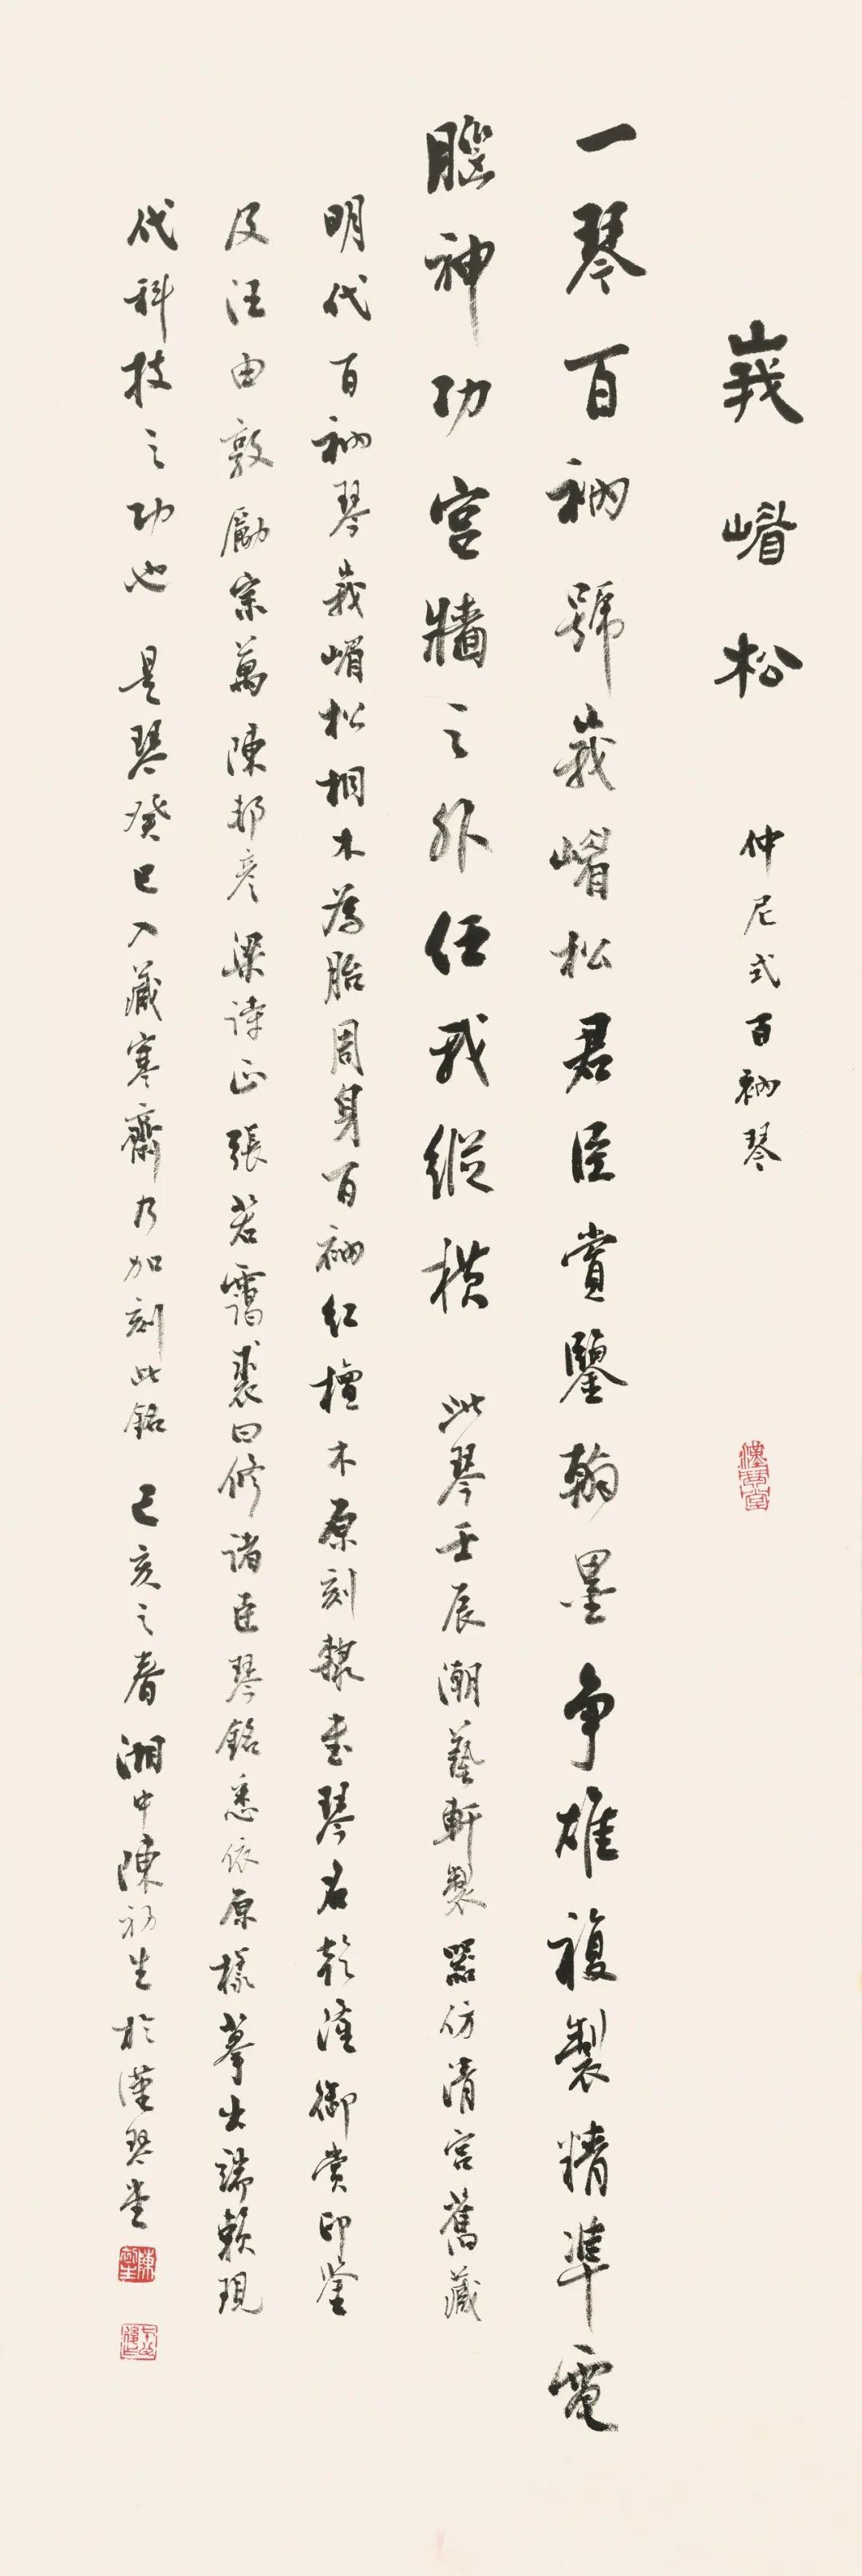 峩嵋松 仲尼式百衲琴
漢琴堂
一琴百衲號峩嵋松君臣賞鑒翰墨争雄複製精準電
腦神功宫牆之外任我縱橫 此琴壬辰潮藝軒製器仿清宫舊藏
明代百衲琴峩嵋松桐木為胎周身百衲紅檀木原刻隸書琴名乾隆御賞印鑒
及汪由敦勵宗萬陳邦彦梁詩正張若靄裘曰修諸臣琴銘悉依原樣摹出端賴現
代科技之功也 是琴癸巳入藏寒齋乃加刻此銘 己亥之春湘中陳初生於漢琴堂
陳初生